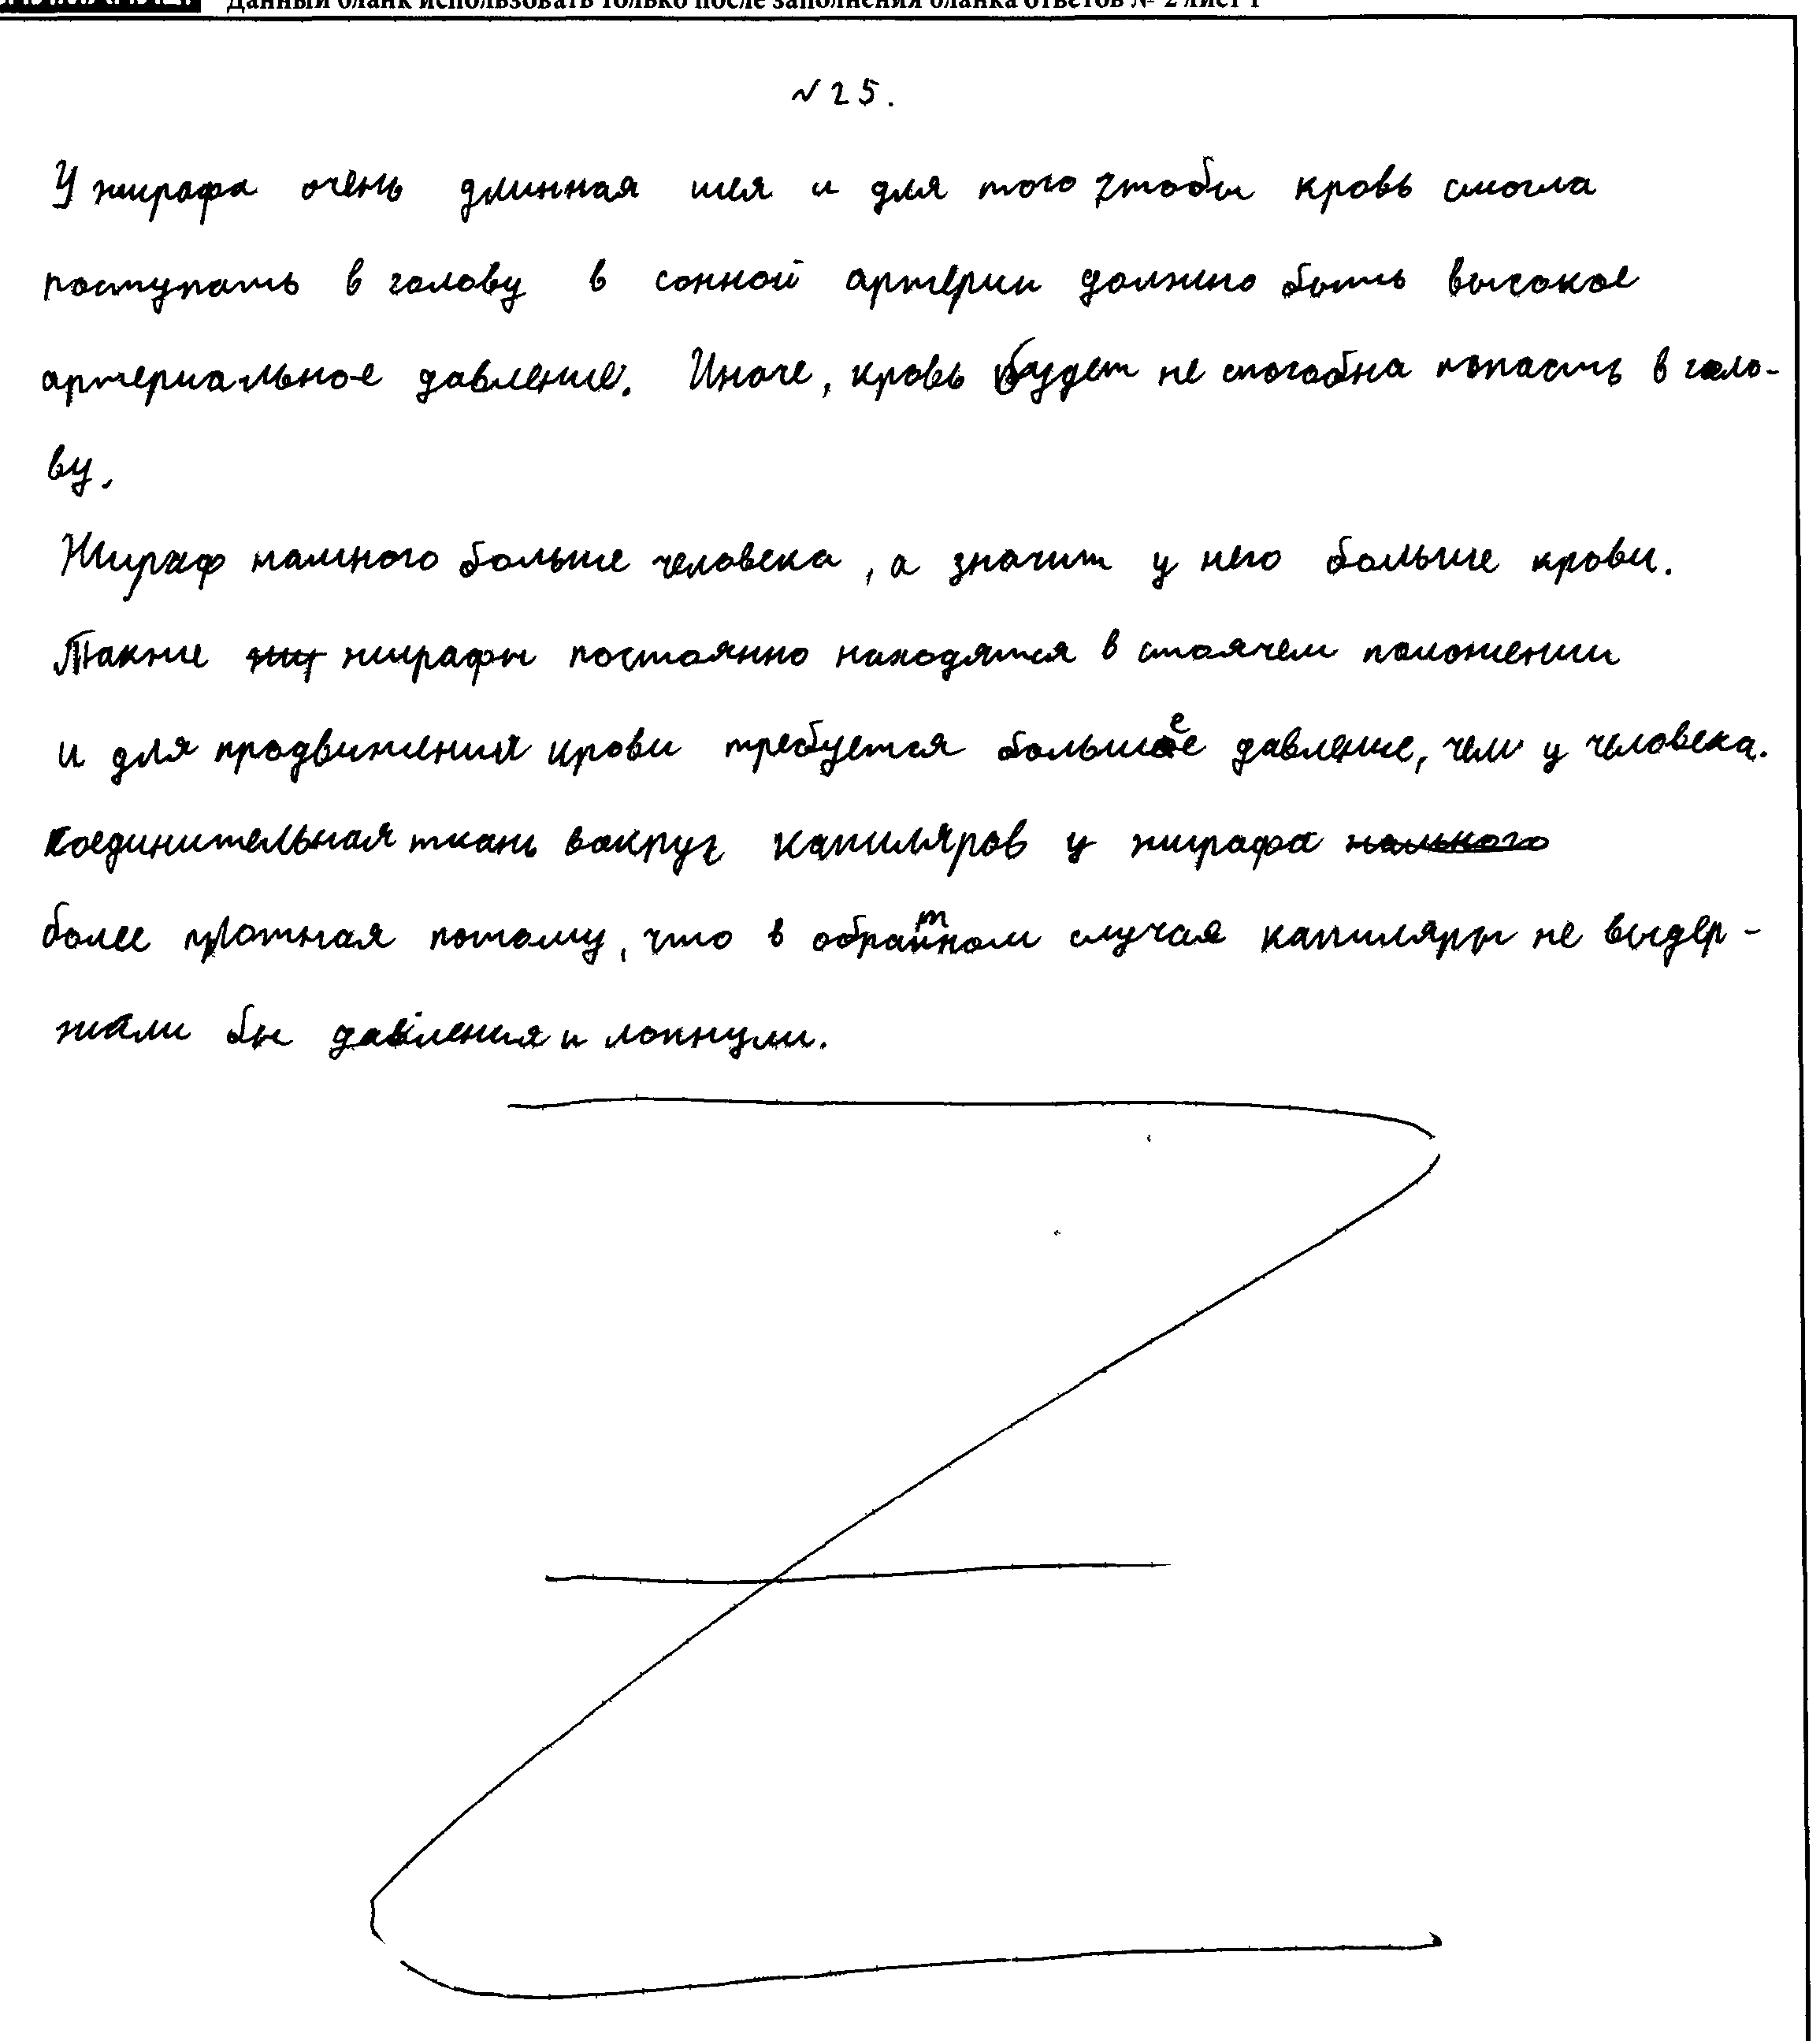 Данный бланк использовать только после заполнения бланка ответов № 2 лист 1
№25.
У жирафа очень длинная шея и для того чтобы кровь смогла
поступать в голову в сонной артерии должно быть высокое
артериальное давление. Иначе, кровь будет не способна попасть в голо-
ву.
Жираф намного больше человека, а значит у него больше крови.
Также жирафы постоянно находятся в стоячем положении
и для продвижения крови требуется большее давление, чем у человека.
Соединительная ткань вокруг капиляров у жирафа
более плотная потому, что в обратном случая капиляры не выдер-
жали бы давления и лопнули.